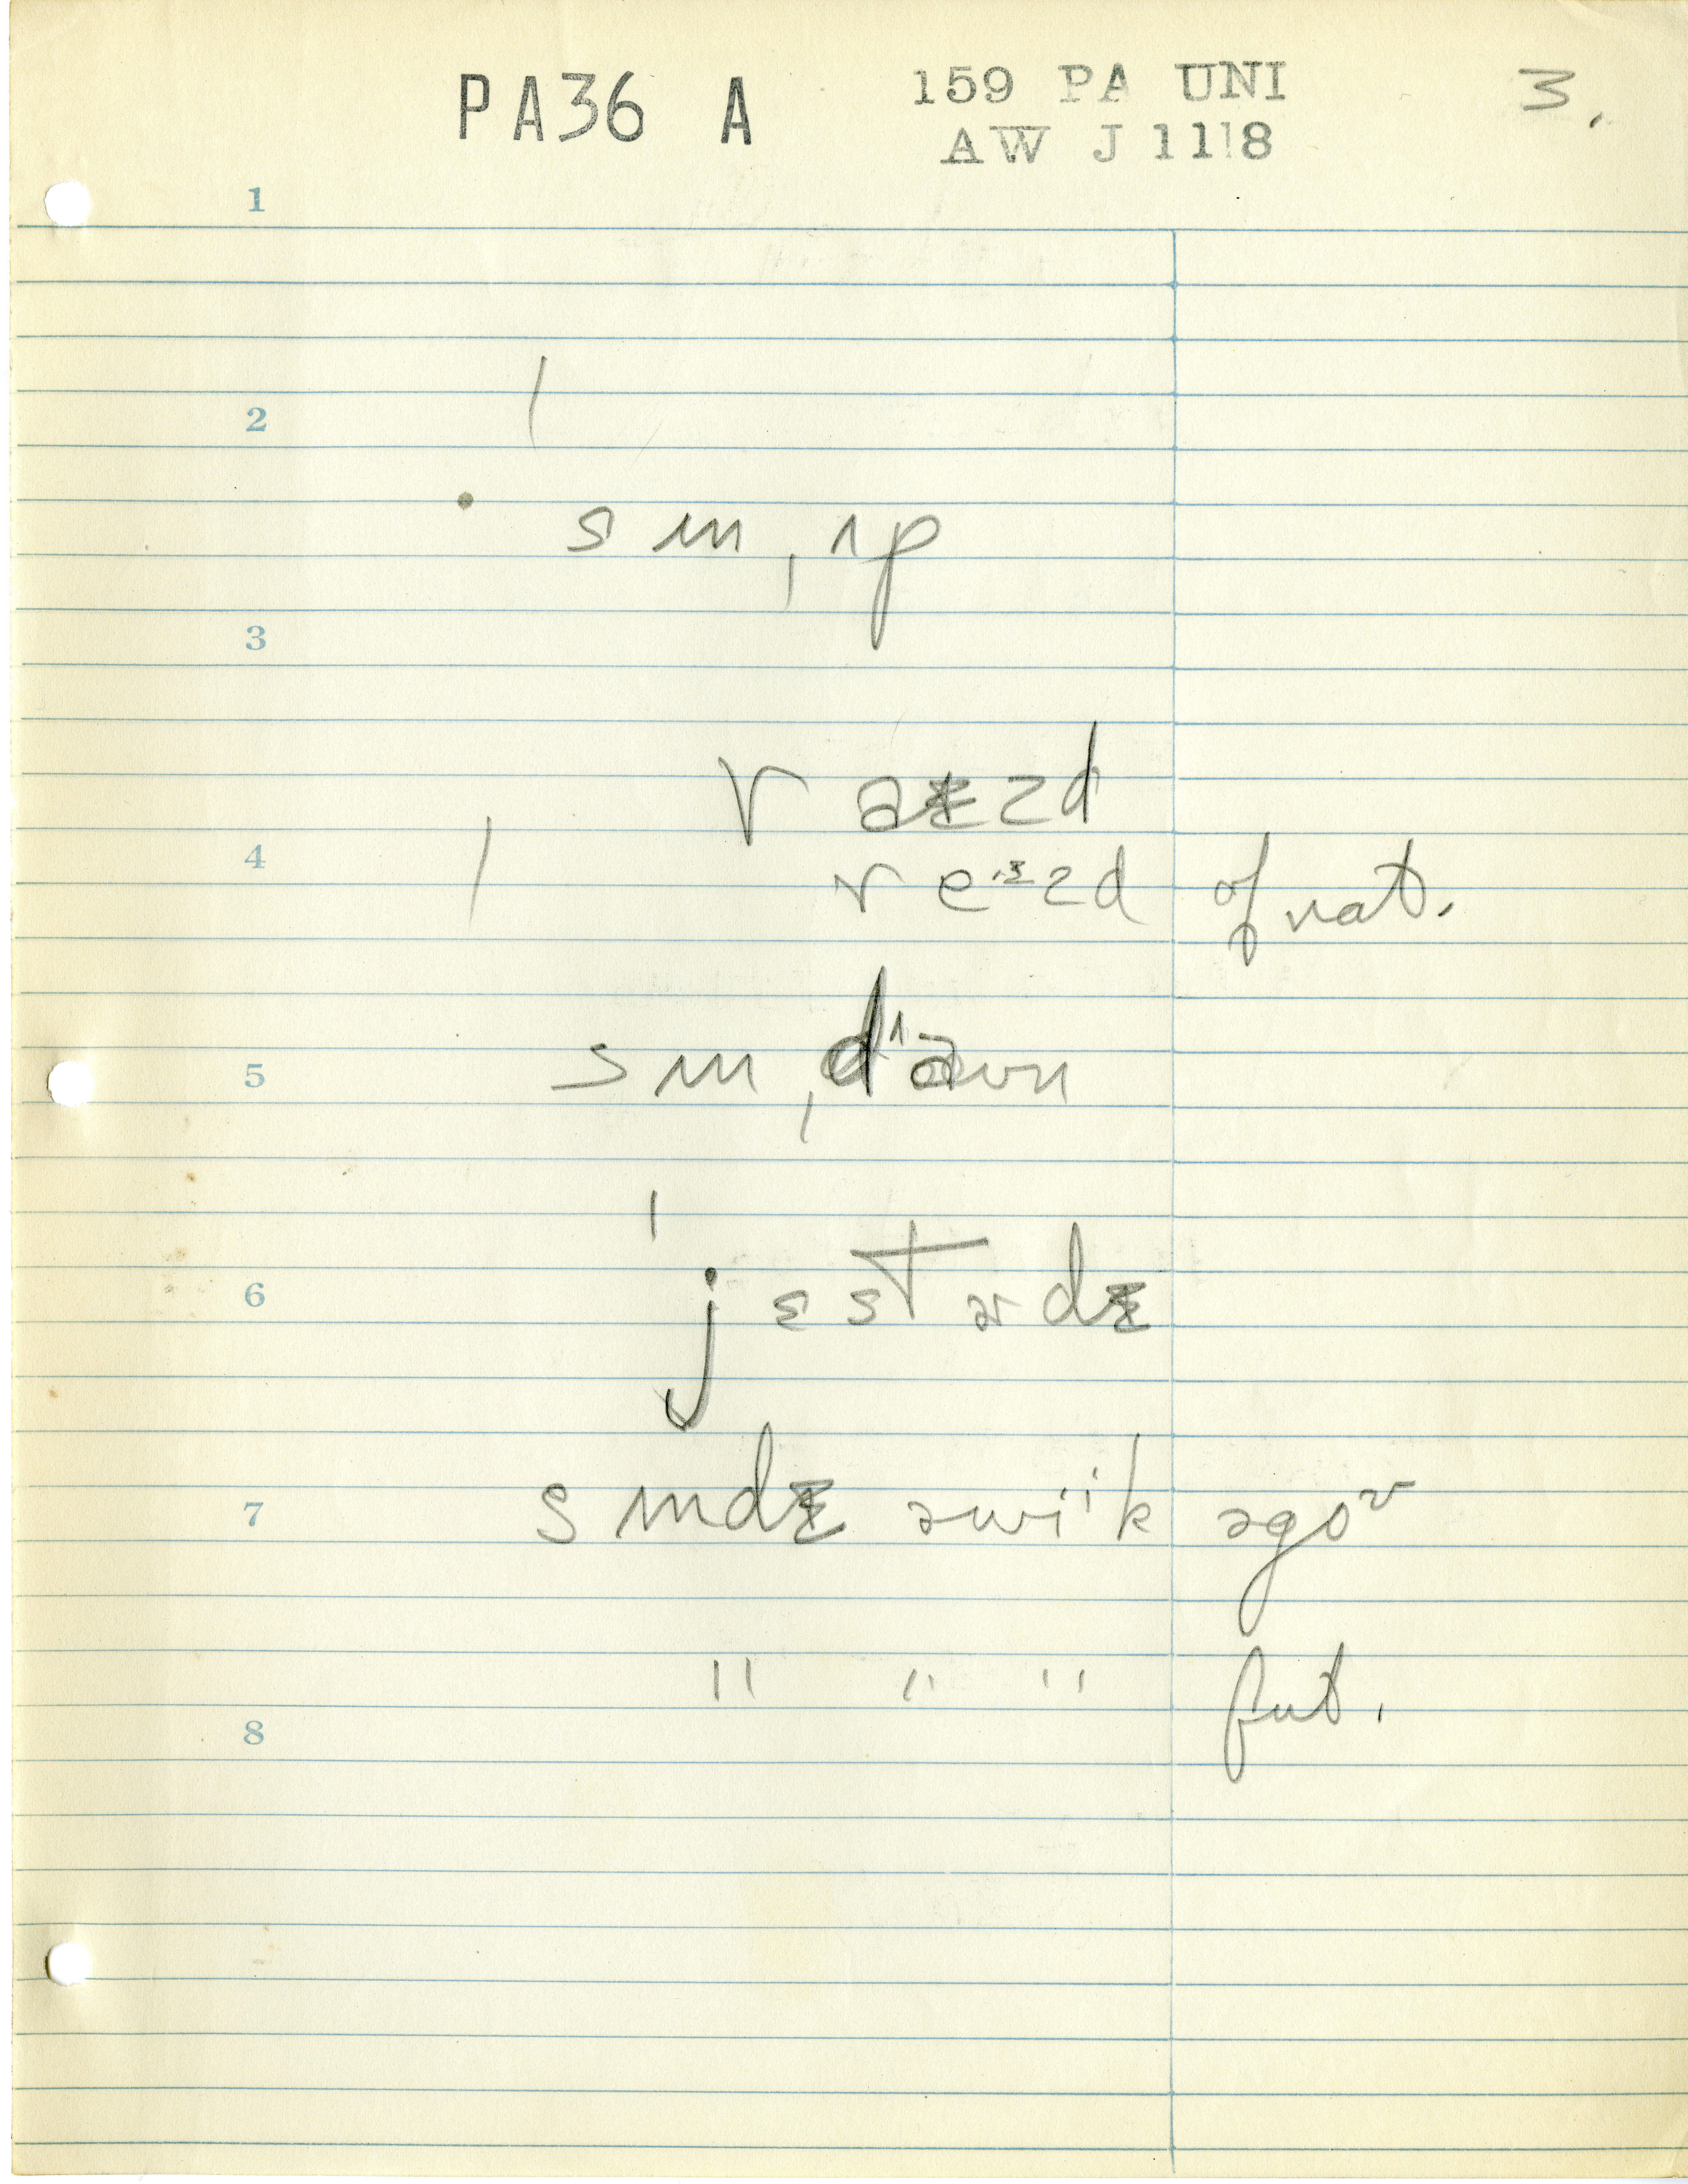 PA36 A 159 PA UNI 3.
AW J 1118
1
2
s ʌn ˌʌp
3
r aɪzd
4
r eɪzd of nat.
5
s ʌn ˌdaʊn
6
ˈjɛstɚdɪ
7
sʌndɪ əwiˑk əgoʊ
" " " fut.
8